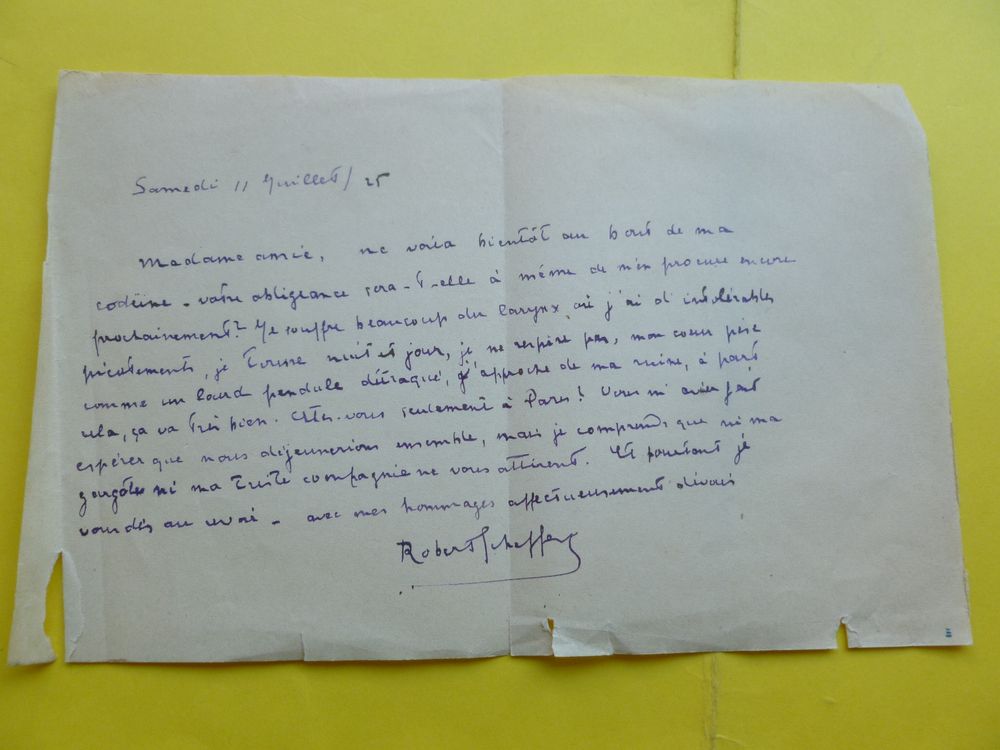 Samedi 11 Juillet / 25
Madame amie, me voici bientôt au bout de ma
codéïne - votre obligeance sera-t-elle à même de m'en procurer encore
prochainement? Je souffre beaucoup du larynx où j'ai d'intolérables
picotements, je tousse nuit et jour, je ne respire pas, mon coeur pèse
comme un lourd pendule détraqué, j'approche de ma ruine, à part
cela, ça va très bien. Etes-vous seulement à Paris? Vous m'aviez fait
espérer que nous déjeunerions ensemble, mais je comprends que ni ma
gargote ni ma triste compagnie ne vous attirent. Et pourtant je
vous dis au revoir - avec mes hommages affectueusement dévoués
Robert Scheffer